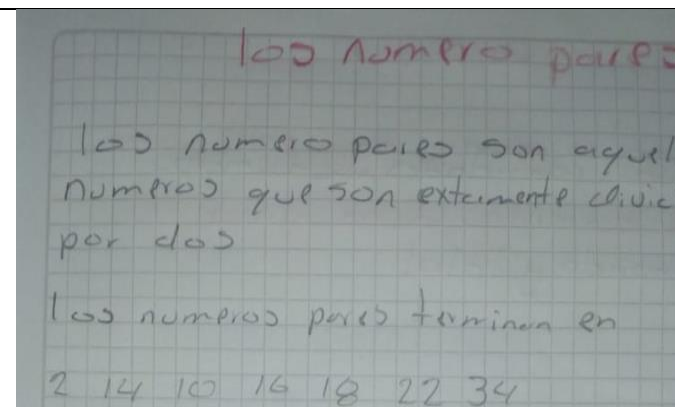 los numero pares
los numero pares son aquel
numeros que son extamente divic
por dos
los numeros pares terminan en
2 14 10 16 18 22 34